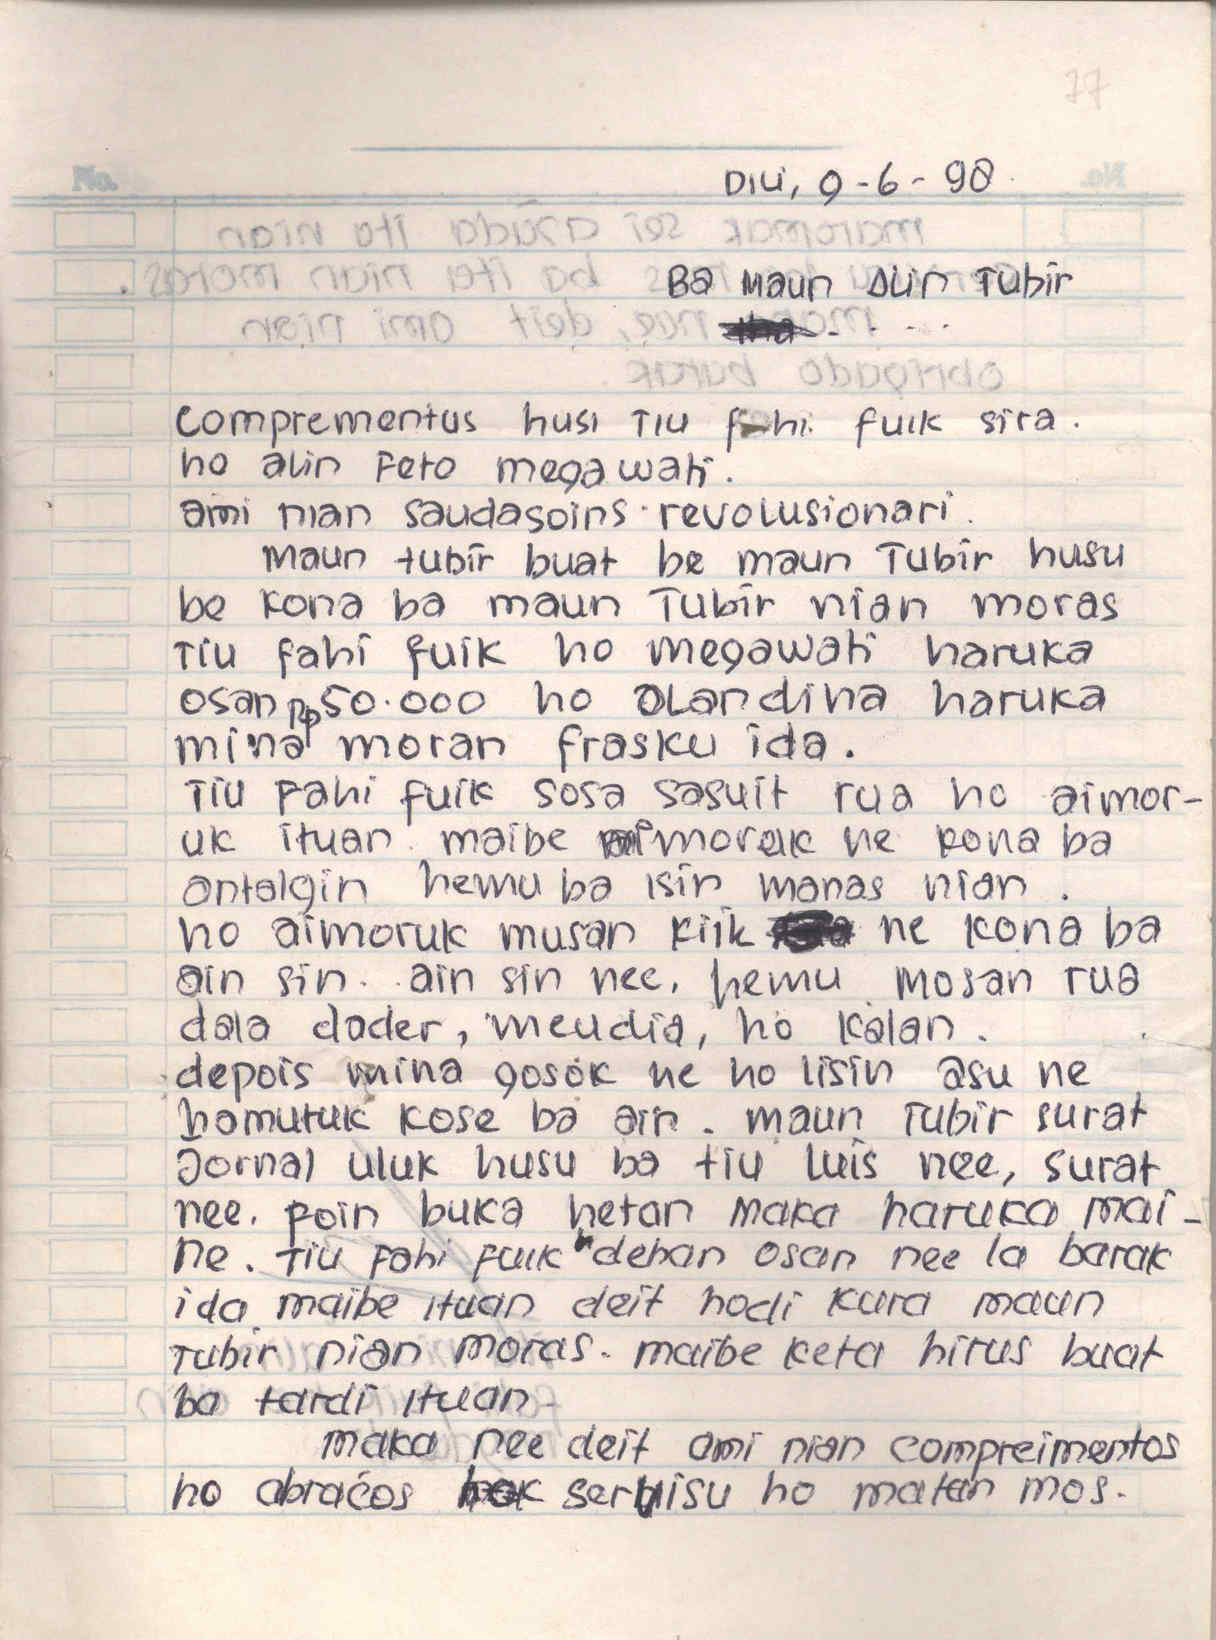 77
Dili, 9-6-98.
Ba Maun Alin Tubir
Comprementus husi Tiu fahi fuik sira.
ho alin Feto megawati.
ami nian saudasoins revolusionari.
Maun tubir buat be maun Tubir husu
be kona ba maun Tubir nian moras
Tiu fahi fuik ho megawati haruka
osan Rp 50.000 ho Olandina haruka
mina moran frasku ida.
Tiu Fahi fuik sosa sasuit rua ho aimor-
uk ituan. maibe aimoruk ne kona ba
antalgin hemu ba isin manas nian.
ho aimoruk musan kiik ne kona ba
ain sin. ain sin nee, hemu mosan rua
dala dader, meudia, ho kalan.
depois mina gosok ne ho lisin asu ne
hamutuk kose ba ain. maun Tubir surat
Jornal uluk husu ba tiu luis nee, surat
nee. foin buka hetan maka haruka mai-
ne. Tiu fahi fuik dehan osan nee la barak
ida maibe ituan deit hodi kura maun
Tubir nian moras. maibe keta hirus buat
ba tardi ituan.
maka nee deit ami nian compreimentos
ho abraços serviisu ho matan mos.